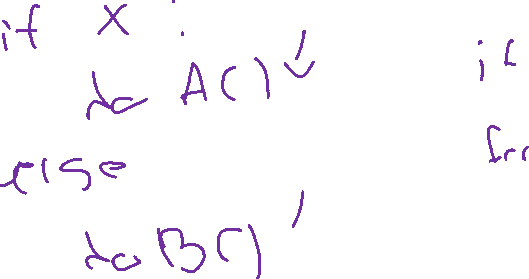 if X :
do A()
else
do B()
if